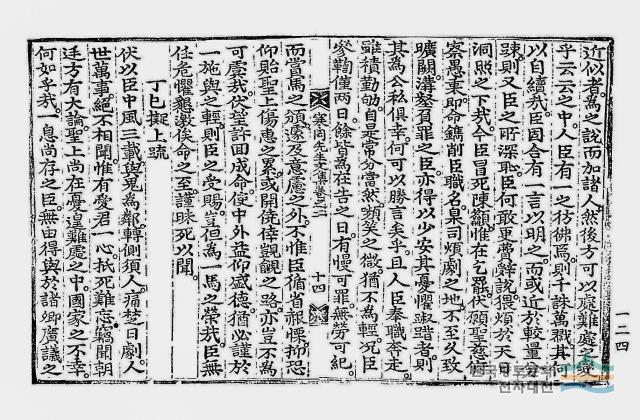 近似者爲之說而加諸人然後方可以處難處之變
乎云云之中人臣有一之彷佛焉則千誅萬戮其可
以自續哉臣固合有一言以明之而或近於較量分
踈則又臣之所深恥臣何敢更費辭說猥煩於天日
洞照之下哉今臣冒死陳籲惟在乞罷伏願聖慈
察愚衷即命鐫削臣職名臬司煩劇之地不至久致
曠闕溝壑負罪之臣亦得以少安其憂懼踧踖者則
其爲公私俱幸何可以勝言矣乎且人臣奉職奔走
雖積勤劬自是常分當然嚬笑之微猶不爲輕况臣
參鞫僅兩日餘皆爲在告之日有慢可罪無勞可紀
而賞馬之頒遽及意慮之外不惟臣循省報慄抑恐
仰貽聖上傷惠之累或開僥倖覬覦之路亦豈不爲
可虞哉伏望許回成命使中外益仰盛德猶必謹於
一施與之輕則臣之受賜豈但爲一馬之榮哉臣無
任危懼懇激俟命之至謹昧死以聞
丁巳擬上疏
伏以臣中風三載與鬼爲鄰轉側須人痛楚日劇人
世萬事絕不相關惟有愛君一心抵死難忘竊聞朝
廷方有大論聖上尚在憂遑難處之中國家之不幸
何如乎哉一息尚存之臣無由得與於諸卿廣議之
寒岡先生文集卷之二
十四
一二四